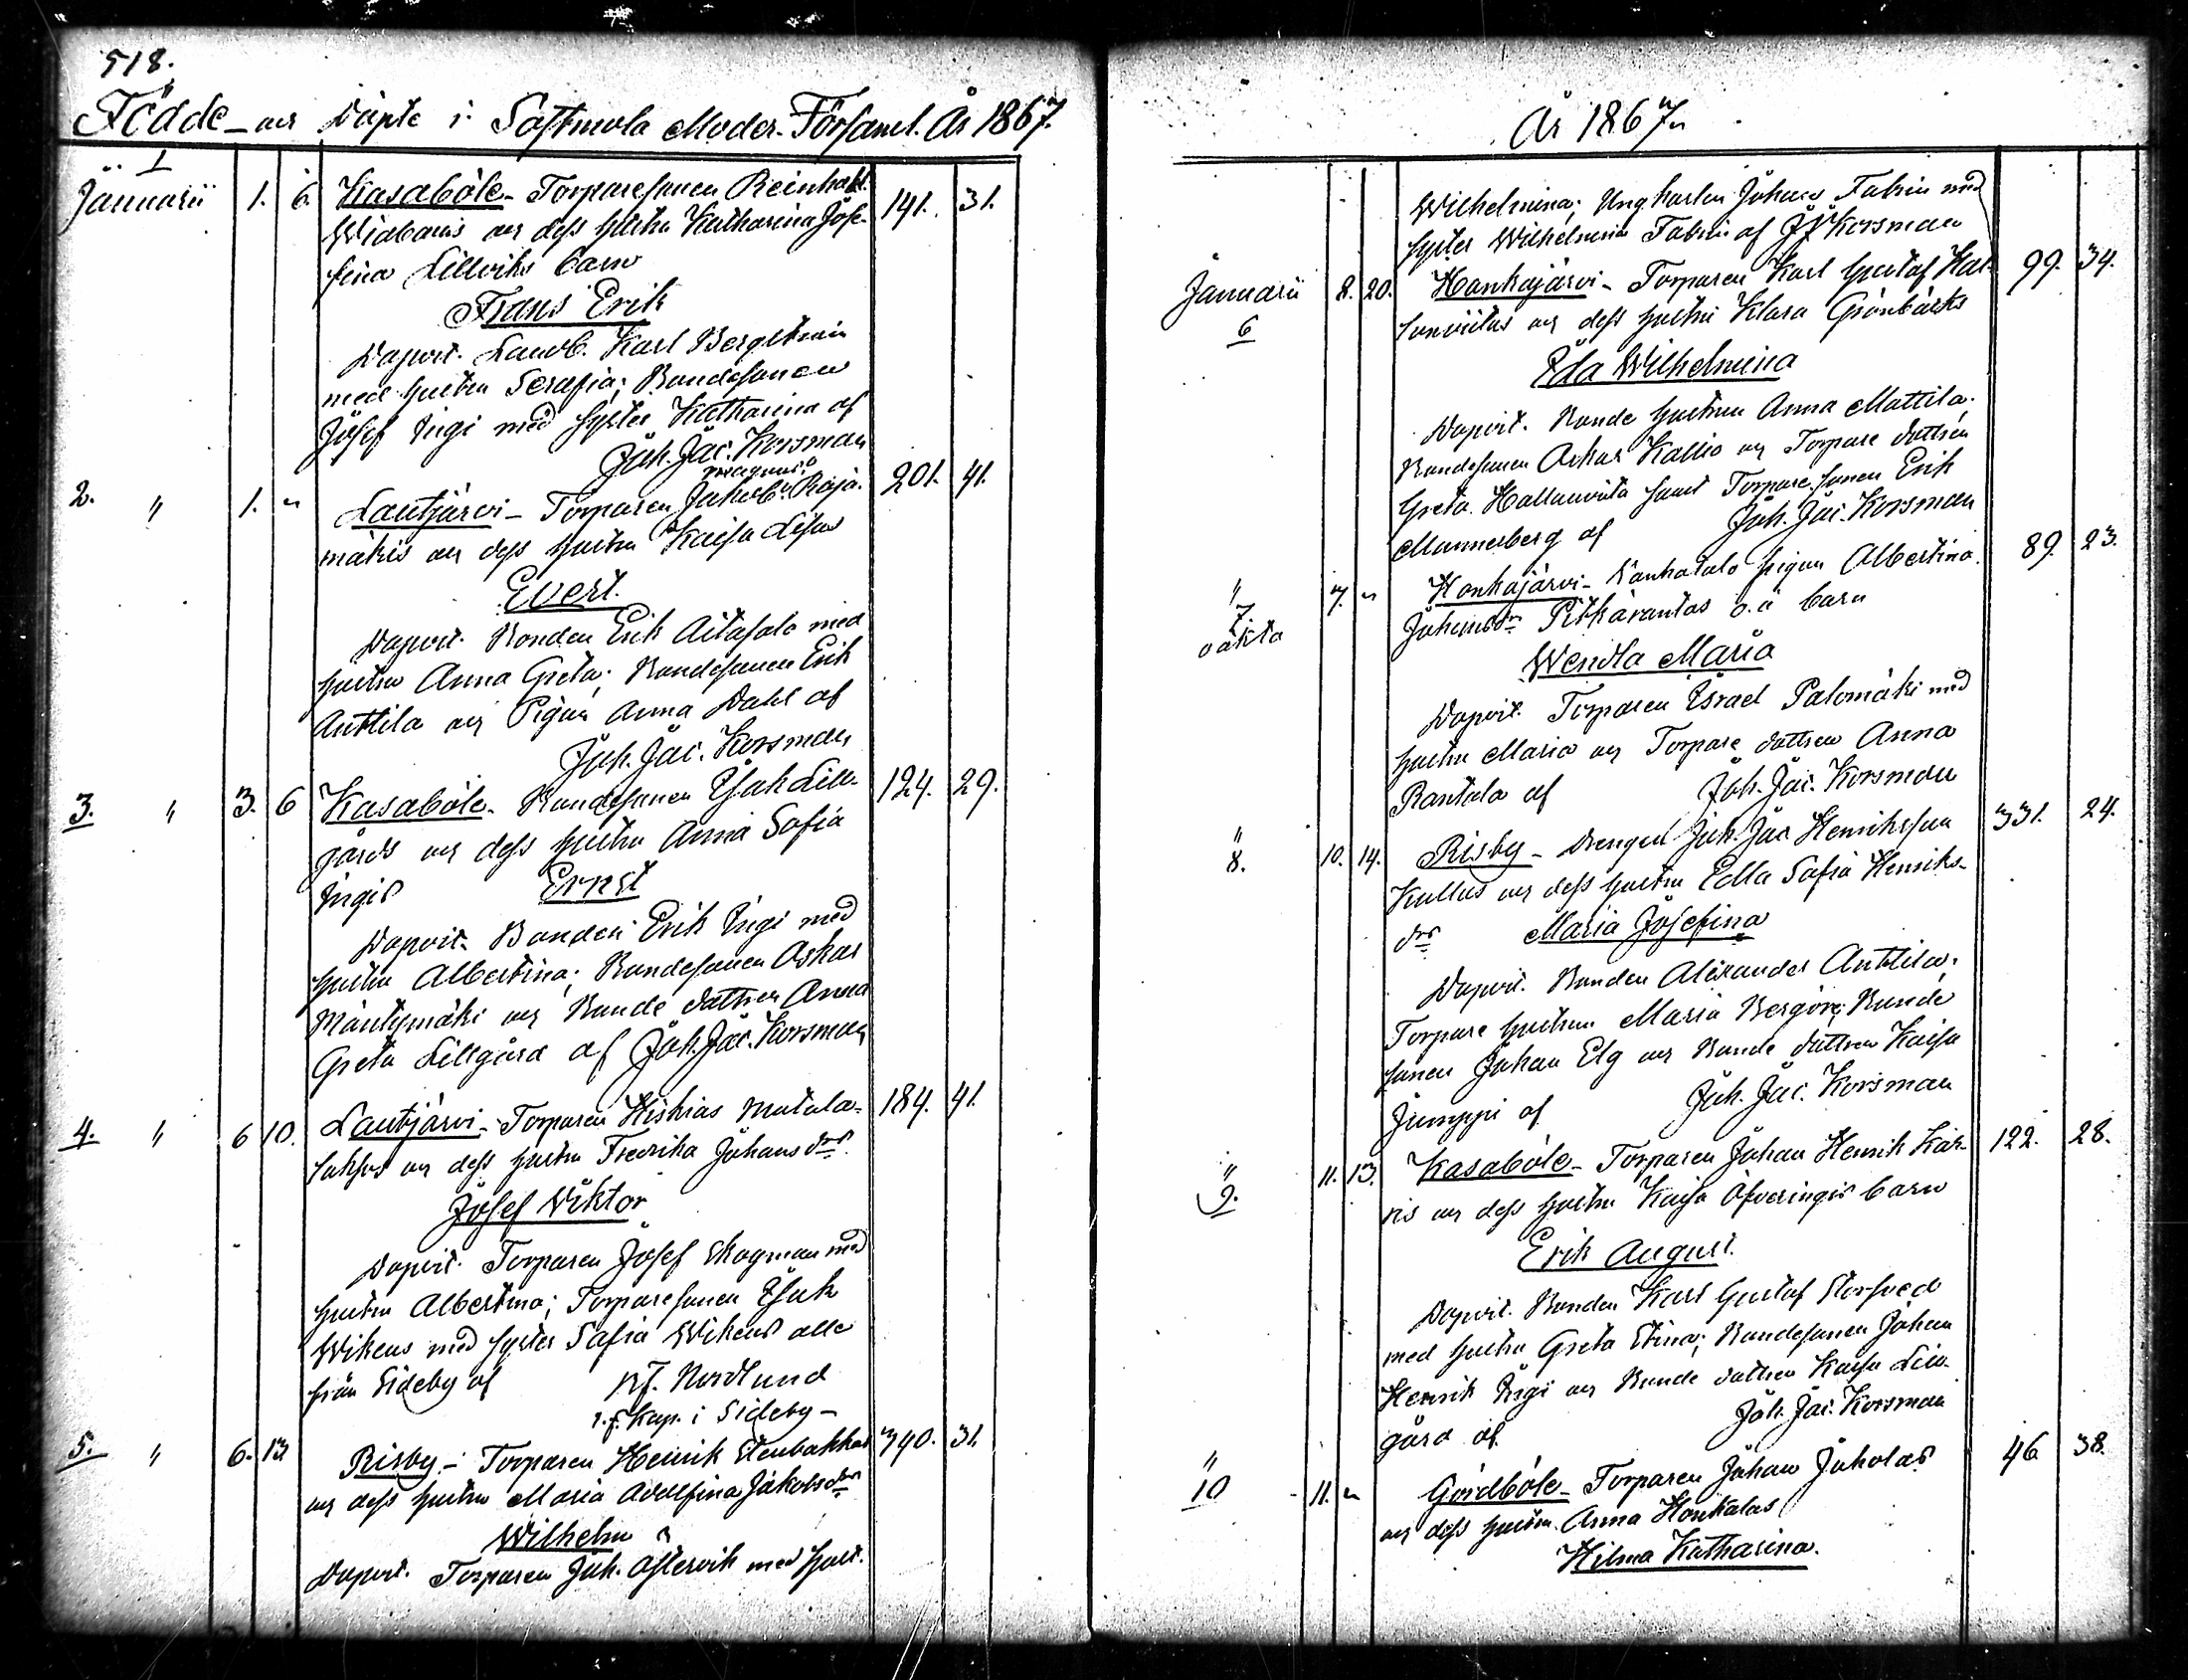 518.
Födde och döpte i Sastmola Moder-Församl. År 1867.
1
Januarii 1. 6. Kasaböle - Torparesonen Reinhold 141. 31.
Widbäcks och dess hustru Katharina Jose-
fina Lillviks barn
Frans Erik
Dopvit. Landb. Karl Bergström
med hustru Serafia; Bondesonen
Josef Ingi med syster Katharina af
Joh. Jac. Korsman
2. " 1. " Lautjärvi - Torparen Jakob Magnus Raja- 201. 41.
mäkis och dess hustru Kaisa Lisas
Evert.
Dopvit. Bonden Erik Aitasalo med
hustru Anna Greta; Bondesonen Erik
Anttila och Pigan Anna Dahl af
Joh. Jac. Korsman
3. " 3. 6 Kasaböle - Bondesonen Isak Lill- 124. 29.
gårds och dess hustru Anna Sofia
Ingis Ernst
Dopvit. Bonden Erik Ingi med
hustru Albertina; Bondesonen Oskar
Mäntymäki och Bonde dottren Anna
Greta Lillgård af Joh. Jac. Korsman
4. " 6 10. Lautjärvi - Torparen Hiskias Matala- 184. 41.
luhtas och dess hustru Fredrika Johansdrs
Josef Viktor
Dopvit. Torparen Josef Skogman med
hustru Albertina; Torparesonen Isak
Wikens med syster Sofia Wikens alla
från Sideby af K.J. Nordlund
v.f. Kap. i Sideby -
5. " 6. 13 Risby - Torparen Henrik Stenbackas 340. 31.
och dess hustru Maria Adolfina Jakobsdrs
Wilhelm
Dopvit. Torparen Joh. Östervik med hust.
År 1867.
Wilhelmina; Ungkarlen Johan Fabrin med
syster Wilhelmina Fabrin af JJ Korsman
Januarii 8. 20. Honkajärvi - Torparen Karl Gustaf Kal- 99. 34.
6
lioniitus och dess hustru Klara Grönbärks
Ida Wilhelmina
Dopvit. Bonde hustrun Anna Mattila;
Bondesonen Oskar Kallio och Torpare dottren
Greta Hallanvita samt Torpare sonen Erik
Mannerberg af Joh. Jac. Korsman
" 7. " Honkajärvi - Vanhatalo pigan Albertina 89. 23.
7.
oäkta
Johansdrs Pitkärantas o.ä barn
Wendla Maria
Dopvit. Torparen Israel Palomäki med
hustru Maria och Torpare dottren Anna
Rantala af Joh. Jac. Korsman
" 10. 14. Risby - Drengen Joh. Jac Henriksson 331. 24.
8.
Kullas och dess hustru Edla Sofia Henriks-
drs Maria Josefina
Dopvit. Bonden Alexander Anttila;
Torpare hustrun Maria Bergöre; Bonde
sonen Johan Elg och Bonde dottren Kaisa
Jumppi af Joh. Jac. Korsman
" 11. 13. Kasaböle - Torparen Johan Henrik Kar- 122. 28.
9.
vis och dess hustru Kaisa Öfveringis barn
Erik August.
Dopvit. Bonden Karl Gustaf Storsved
med hustru Greta Stina; Bondesonen Johan
Henrik Ingi och Bonde dottren Kaisa Lill-
gård af Joh. Jac. Korsman
" 11. " Gördböle - Torparen Johan Juholas 46 38.
10
och dess hustru Anna Honkalas
Hilma Katharina.